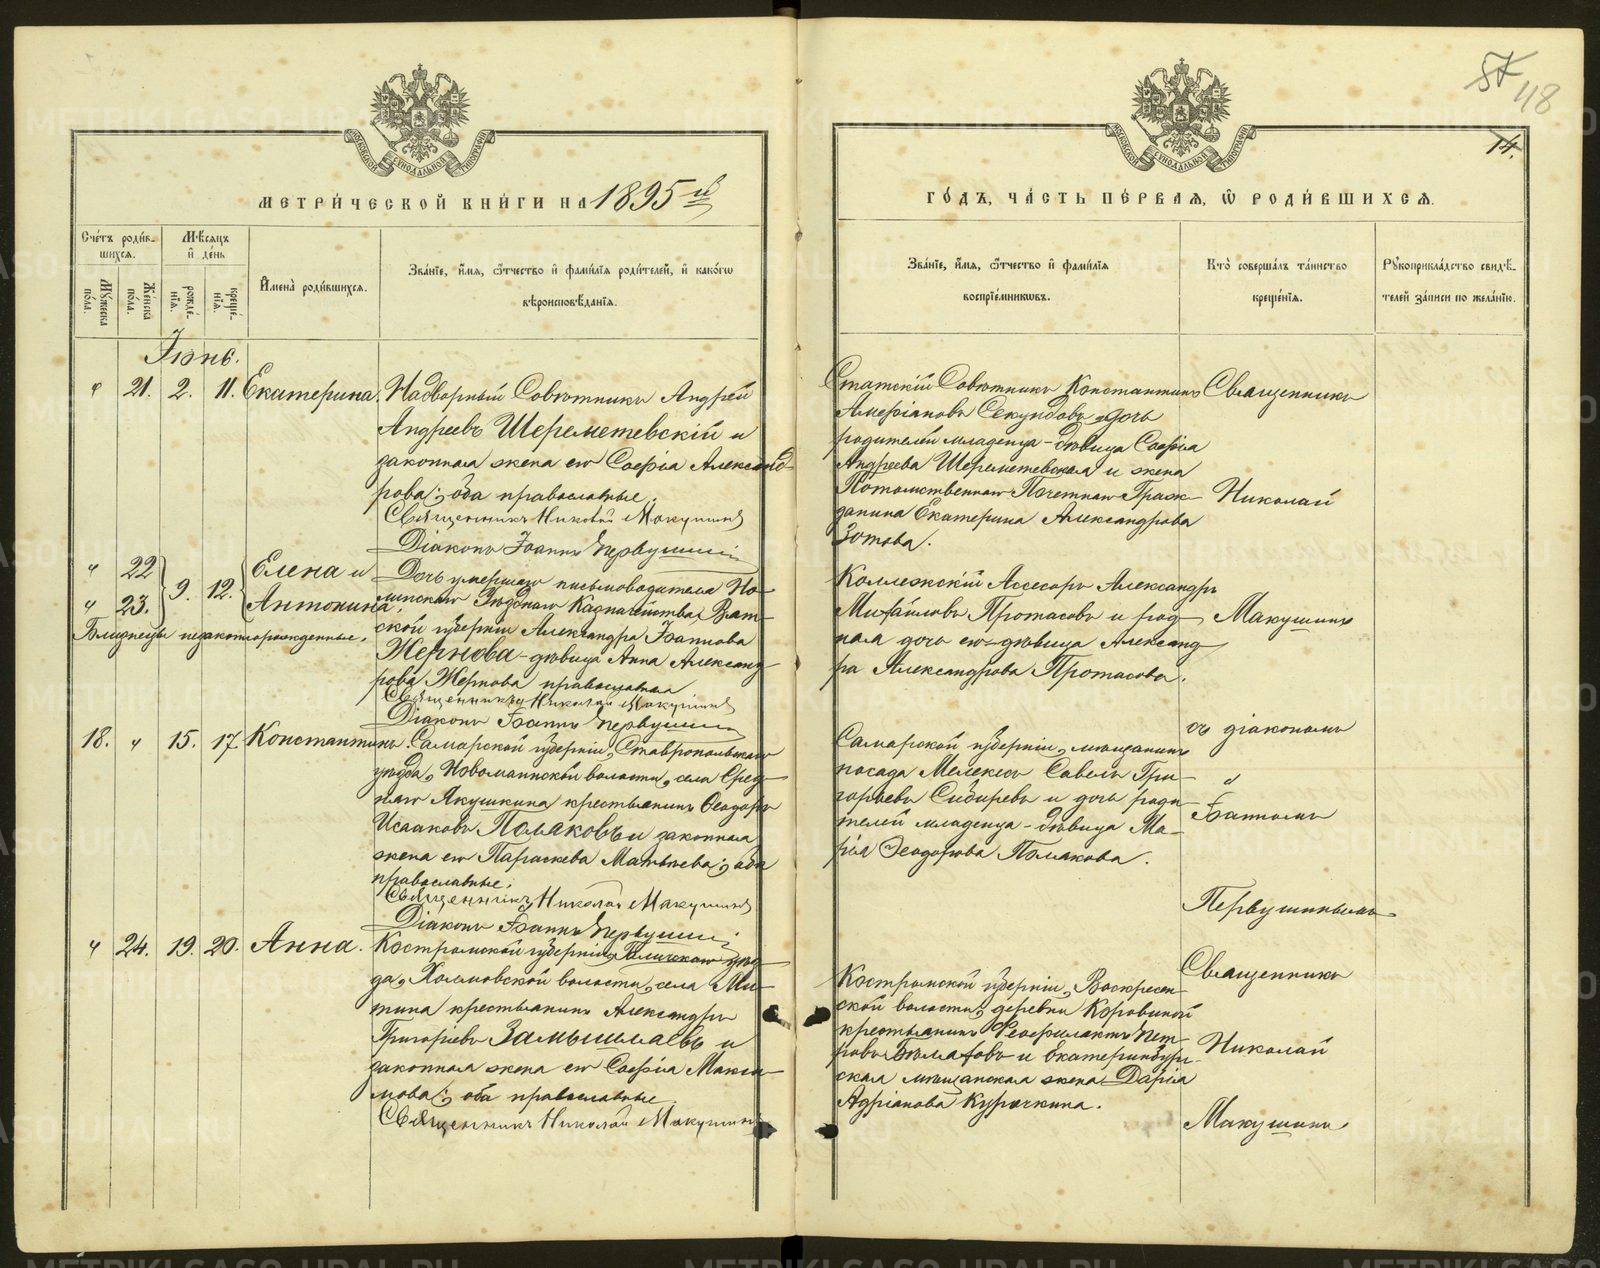 57 48
14.
МОСКОВСКОЙ СѴНОДАЛЬНОЙ ТИПОГРАФІИ
МЕТРИ́ЧЕСКОЙ КНИ́ГИ НА 1895 й
Сче́тъ роди́в-
шихся.
Мѣ́сяцъ
и҆ де́нь
Мꙋ́жеска по́ла.
Же́нска по́ла.
рожде́-
нїѧ.
креще́-
нїѧ.
И҆мена̀ роди́вшихсѧ.
Зва́нїе, и҆́мѧ, ѻ҆́тчество и҆ фами́лїѧ роди́телей, и҆ како́гѡ
вѣроисповѣ́данїѧ.
Іюнь.
" 21. 2. 11. Екатерина.
Надворный Совѣтникъ Андрей
Андреевъ Шереметевскій и
законная жена его Софія Александ-
рова; оба православные.
Священникъ Николай Макушинъ
Діаконъ Іоаннъ Первушинъ
" 22
" 23. 9. 12. Елена и
Антонина.
Близнецы незаконнорожденные.
Дочь умершаго письмоводителя Но-
линскаго Уѣзднаго Казначейства, Вят-
ской губерніи Александра Іоаннова
Жернова - дѣвица Анна Александ-
рова Жернова православная
Священникъ Николай Макушинъ
Діаконъ Іоаннъ Первушинъ
18. " 15. 17. Константинъ.
Самарской губерніи, Ставропольскаго
уѣзда, Новомаинской волости, села Сред-
няго Якушкина крестьянинъ Ѳеодоръ
Исааковъ Поляковъ и законная
жена его Параскева Матѳеева; оба
православные;
Священникъ Николай Макушинъ
Діаконъ Іоаннъ Первушинъ
" 24. 19. 20. Анна.
Костромской губерніи, Галичскаго уѣз-
да, Холмовской волости, села Ми-
тина крестьянинъ Александръ
Григоріевъ Замышляевъ и
законная жена его Софія Макси-
мова; оба православные.
Священникъ Николай Макушинъ
МОСКОВСКОЙ СѴНОДАЛЬНОЙ ТИПОГРАФІИ
ГО́ДЪ, ЧА́СТЬ ПЕ́РВАѦ, Ѡ҆ РОДИ́ВШИХСѦ.
Зва́нїе, и҆́мѧ, ѻ҆́тчество и҆ фами́лїѧ
воспрїе́мникѡвъ.
Кто̀ соверша́лъ та́инство
креще́нїѧ.
Рꙋкоприкла́дство свидѣ́-
телей за́писи по жела́нїю.
Статскій Совѣтникъ Константинъ
Амфіановъ Секундовъ и дочь
родителей младенца - дѣвица Софія
Андреева Шереметевская и жена
Потомственнаго Почетнаго Граж-
данина Екатерина Александрова
Зотова.
Священникъ
Николай
Коллежскій Ассесоръ Александръ
Михайловъ Протасовъ и род-
ная дочь его - дѣвица Александ-
ра Александрова Протасова.
Макушинъ
съ діакономъ
Самарской губерніи, мѣщанинъ
посада Мелекесъ Савелъ Гри-
горьевъ Сибиревъ и дочь роди-
телей младенца - дѣвица Ма-
рія Ѳеодорова Полякова.
"
Іоанномъ
Первушинымъ
Костромской губерніи, Воскресен-
ской волости, деревни Коровиной
крестьянинъ Ѳеофилактъ Пет-
ровъ и Екатеринбург-
ская мѣщанская жена Дарія
Адріанова Курочкина.
Священникъ
Николай
Макушинъ
METRIKI.GASO-URAL.RU